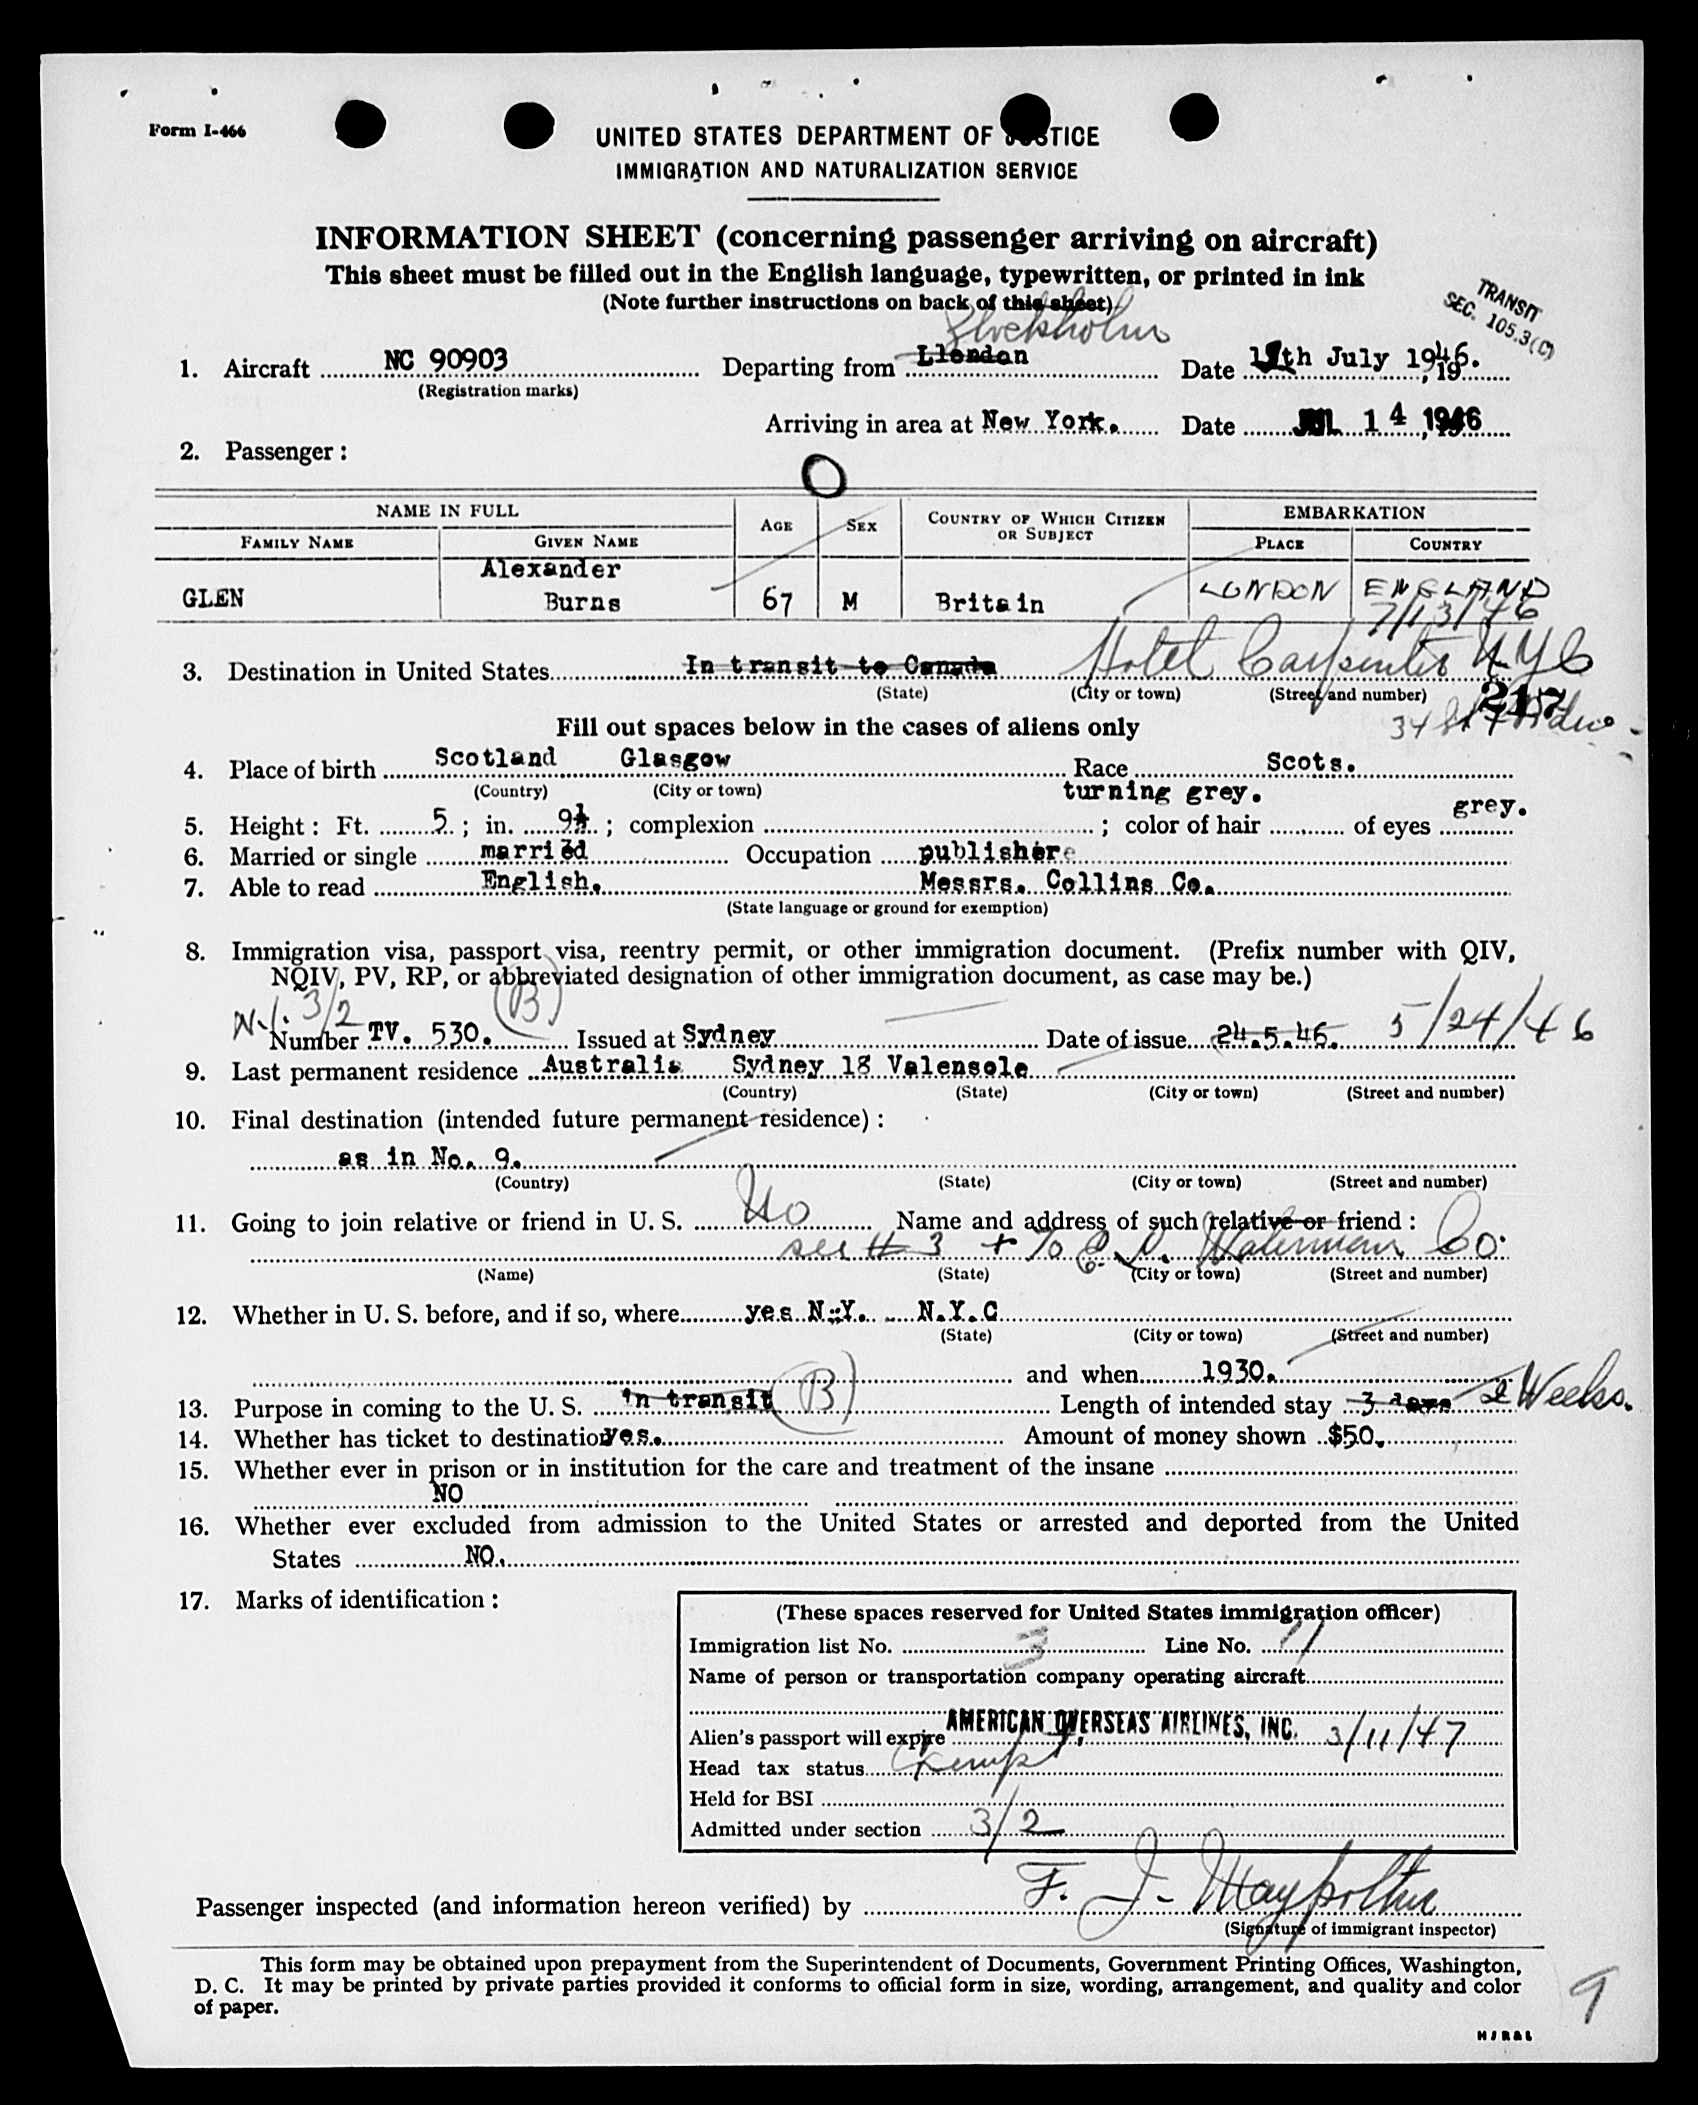 Form I-466
UNITED STATES DEPARTMENT OF JUSTICE
IMMIGRATION AND NATURALIZATION SERVICE
INFORMATION SHEET (concerning passenger arriving on aircraft)
This sheet must be filled out in the English language, typewritten, or printed in ink
(Note further instructions on back of this sheet)
TRANSIT
SEC. 105.3(C)
Stockholm
1. Aircraft NC 90903 Departing from Llondon Date 12th July 1946.
(Registration marks)
Arriving in area at New York. Date JUL 14 1946
2. Passenger :
NAME IN FULL AGE SEX COUNTRY OF WHICH CITIZEN OR SUBJECT EMBARKATION
FAMILY NAME GIVEN NAME PLACE COUNTRY
GLEN Alexander Burns 67 M Britain LONDON ENGLAND
7/13/46
3. Destination in United States In transit to Canada Hotel Carpenter N Y C
(State) (City or town) (Street and number) 217
Fill out spaces below in the cases of aliens only 34 St
4. Place of birth Scotland Glasgow Race Scots.
(Country) (City or town) turning grey.
5. Height : Ft. 5 ; in. 9½ ; complexion ; color of hair of eyes grey.
6. Married or single married Occupation publishere
7. Able to read English. Messrs. Collins Co.
(State language or ground for exemption)
8. Immigration visa, passport visa, reentry permit, or other immigration document. (Prefix number with QIV,
NQIV, PV, RP, or abbreviated designation of other immigration document, as case may be.)
N.I. 3/2 (B)
Number TV. 530. Issued at Sydney Date of issue 24.5.46. 5/24/46
9. Last permanent residence Australia Sydney 18 Valensole
(Country) (State) (City or town) (Street and number)
10. Final destination (intended future permanent residence) :
as in No. 9.
(Country) (State) (City or town) (Street and number)
11. Going to join relative or friend in U. S. No Name and address of such relative or friend :
see # 3 + % Waterman Co.
(Name) (State) (City or town) (Street and number)
12. Whether in U. S. before, and if so, where yes N.Y. N.Y.C
(State) (City or town) (Street and number)
and when 1930.
13. Purpose in coming to the U. S. in transit (B) Length of intended stay 3 days 2 Weeks.
14. Whether has ticket to destination yes. Amount of money shown $50.
15. Whether ever in prison or in institution for the care and treatment of the insane
NO
16. Whether ever excluded from admission to the United States or arrested and deported from the United
States NO.
17. Marks of identification :
(These spaces reserved for United States immigration officer)
Immigration list No. 3 Line No. 11
Name of person or transportation company operating aircraft
AMERICAN OVERSEAS AIRLINES, INC.
Alien's passport will expire 3/11/47
Head tax status Exempt
Held for BSI
Admitted under section 3/2
Passenger inspected (and information hereon verified) by F. J.
(Signature of immigrant inspector)
This form may be obtained upon prepayment from the Superintendent of Documents, Government Printing Offices, Washington,
D. C. It may be printed by private parties provided it conforms to official form in size, wording, arrangement, and quality and color
of paper.
9